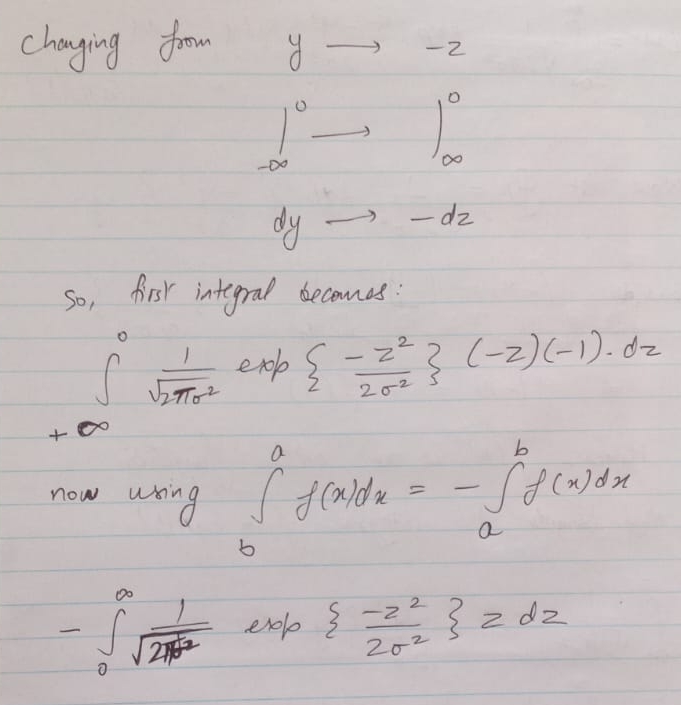 Changing from y → -z
∫_{-∞}^{0} → ∫_{∞}^{0}
dy → - dz
So, first integral becomes:
∫_{+∞}^{0} \frac{1}{\sqrt{2πσ^2}} exp { \frac{-z^2}{2σ^2} } (-z)(-1). dz
now using ∫_{b}^{a} f(x)dx = - ∫_{a}^{b} f(x)dx
- ∫_{0}^{∞} \frac{1}{\sqrt{2πσ^2}} exp { \frac{-z^2}{2σ^2} } z dz